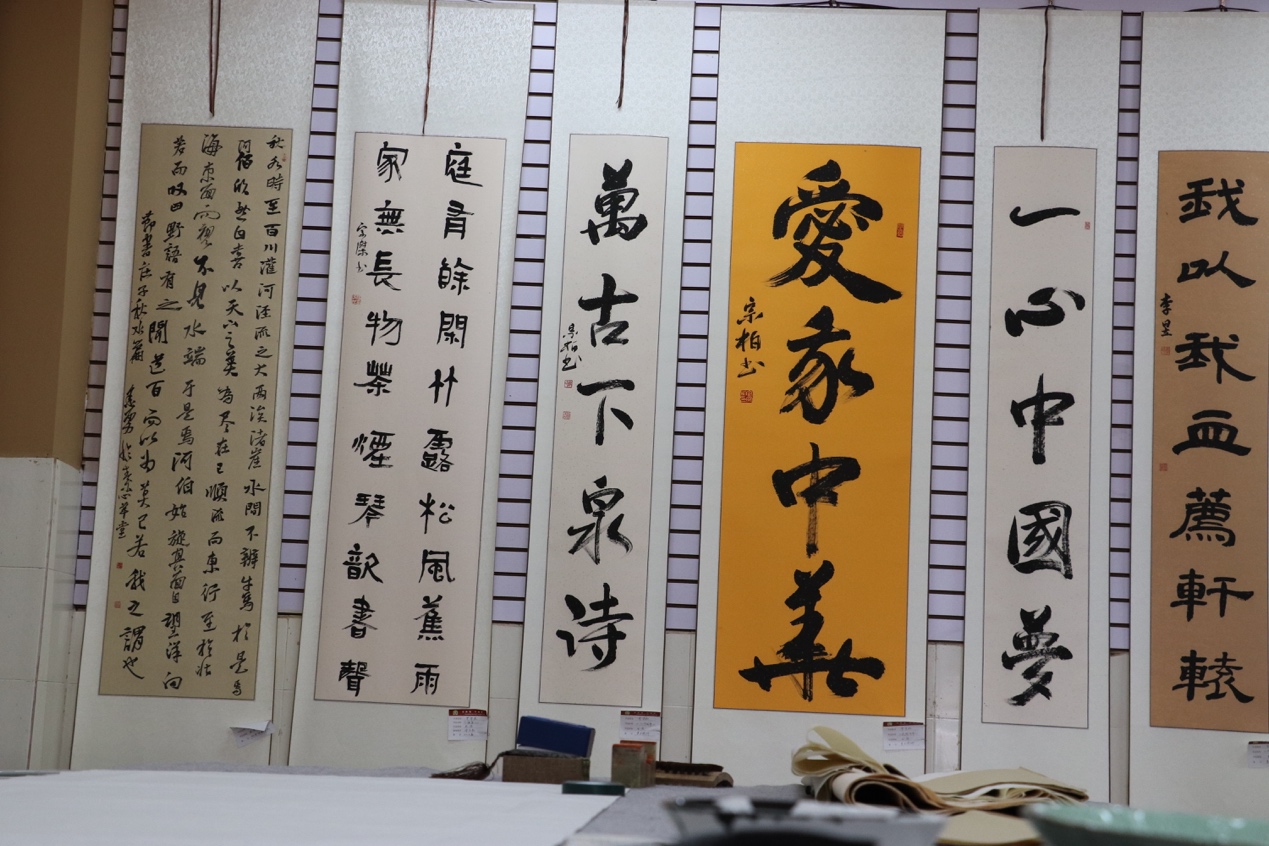 我以我血薦軒轅
一心中國夢
愛我中華
宗柏书
萬古下泉诗
宗柏书
庭有餘閑竹露松風蕉雨
家無長物茶煙琴韻書聲
秋水時至百川灌河泾流之大兩涘渚崖水間不辨牛馬於是焉
河伯欣然自喜以天下之美為尽在己順流而東行至於北
海東面而視不見水端于是焉河伯始旋其面目望洋向
若而叹曰野語有之聞道百而以為莫己若我之謂也
節書庄子秋水篇